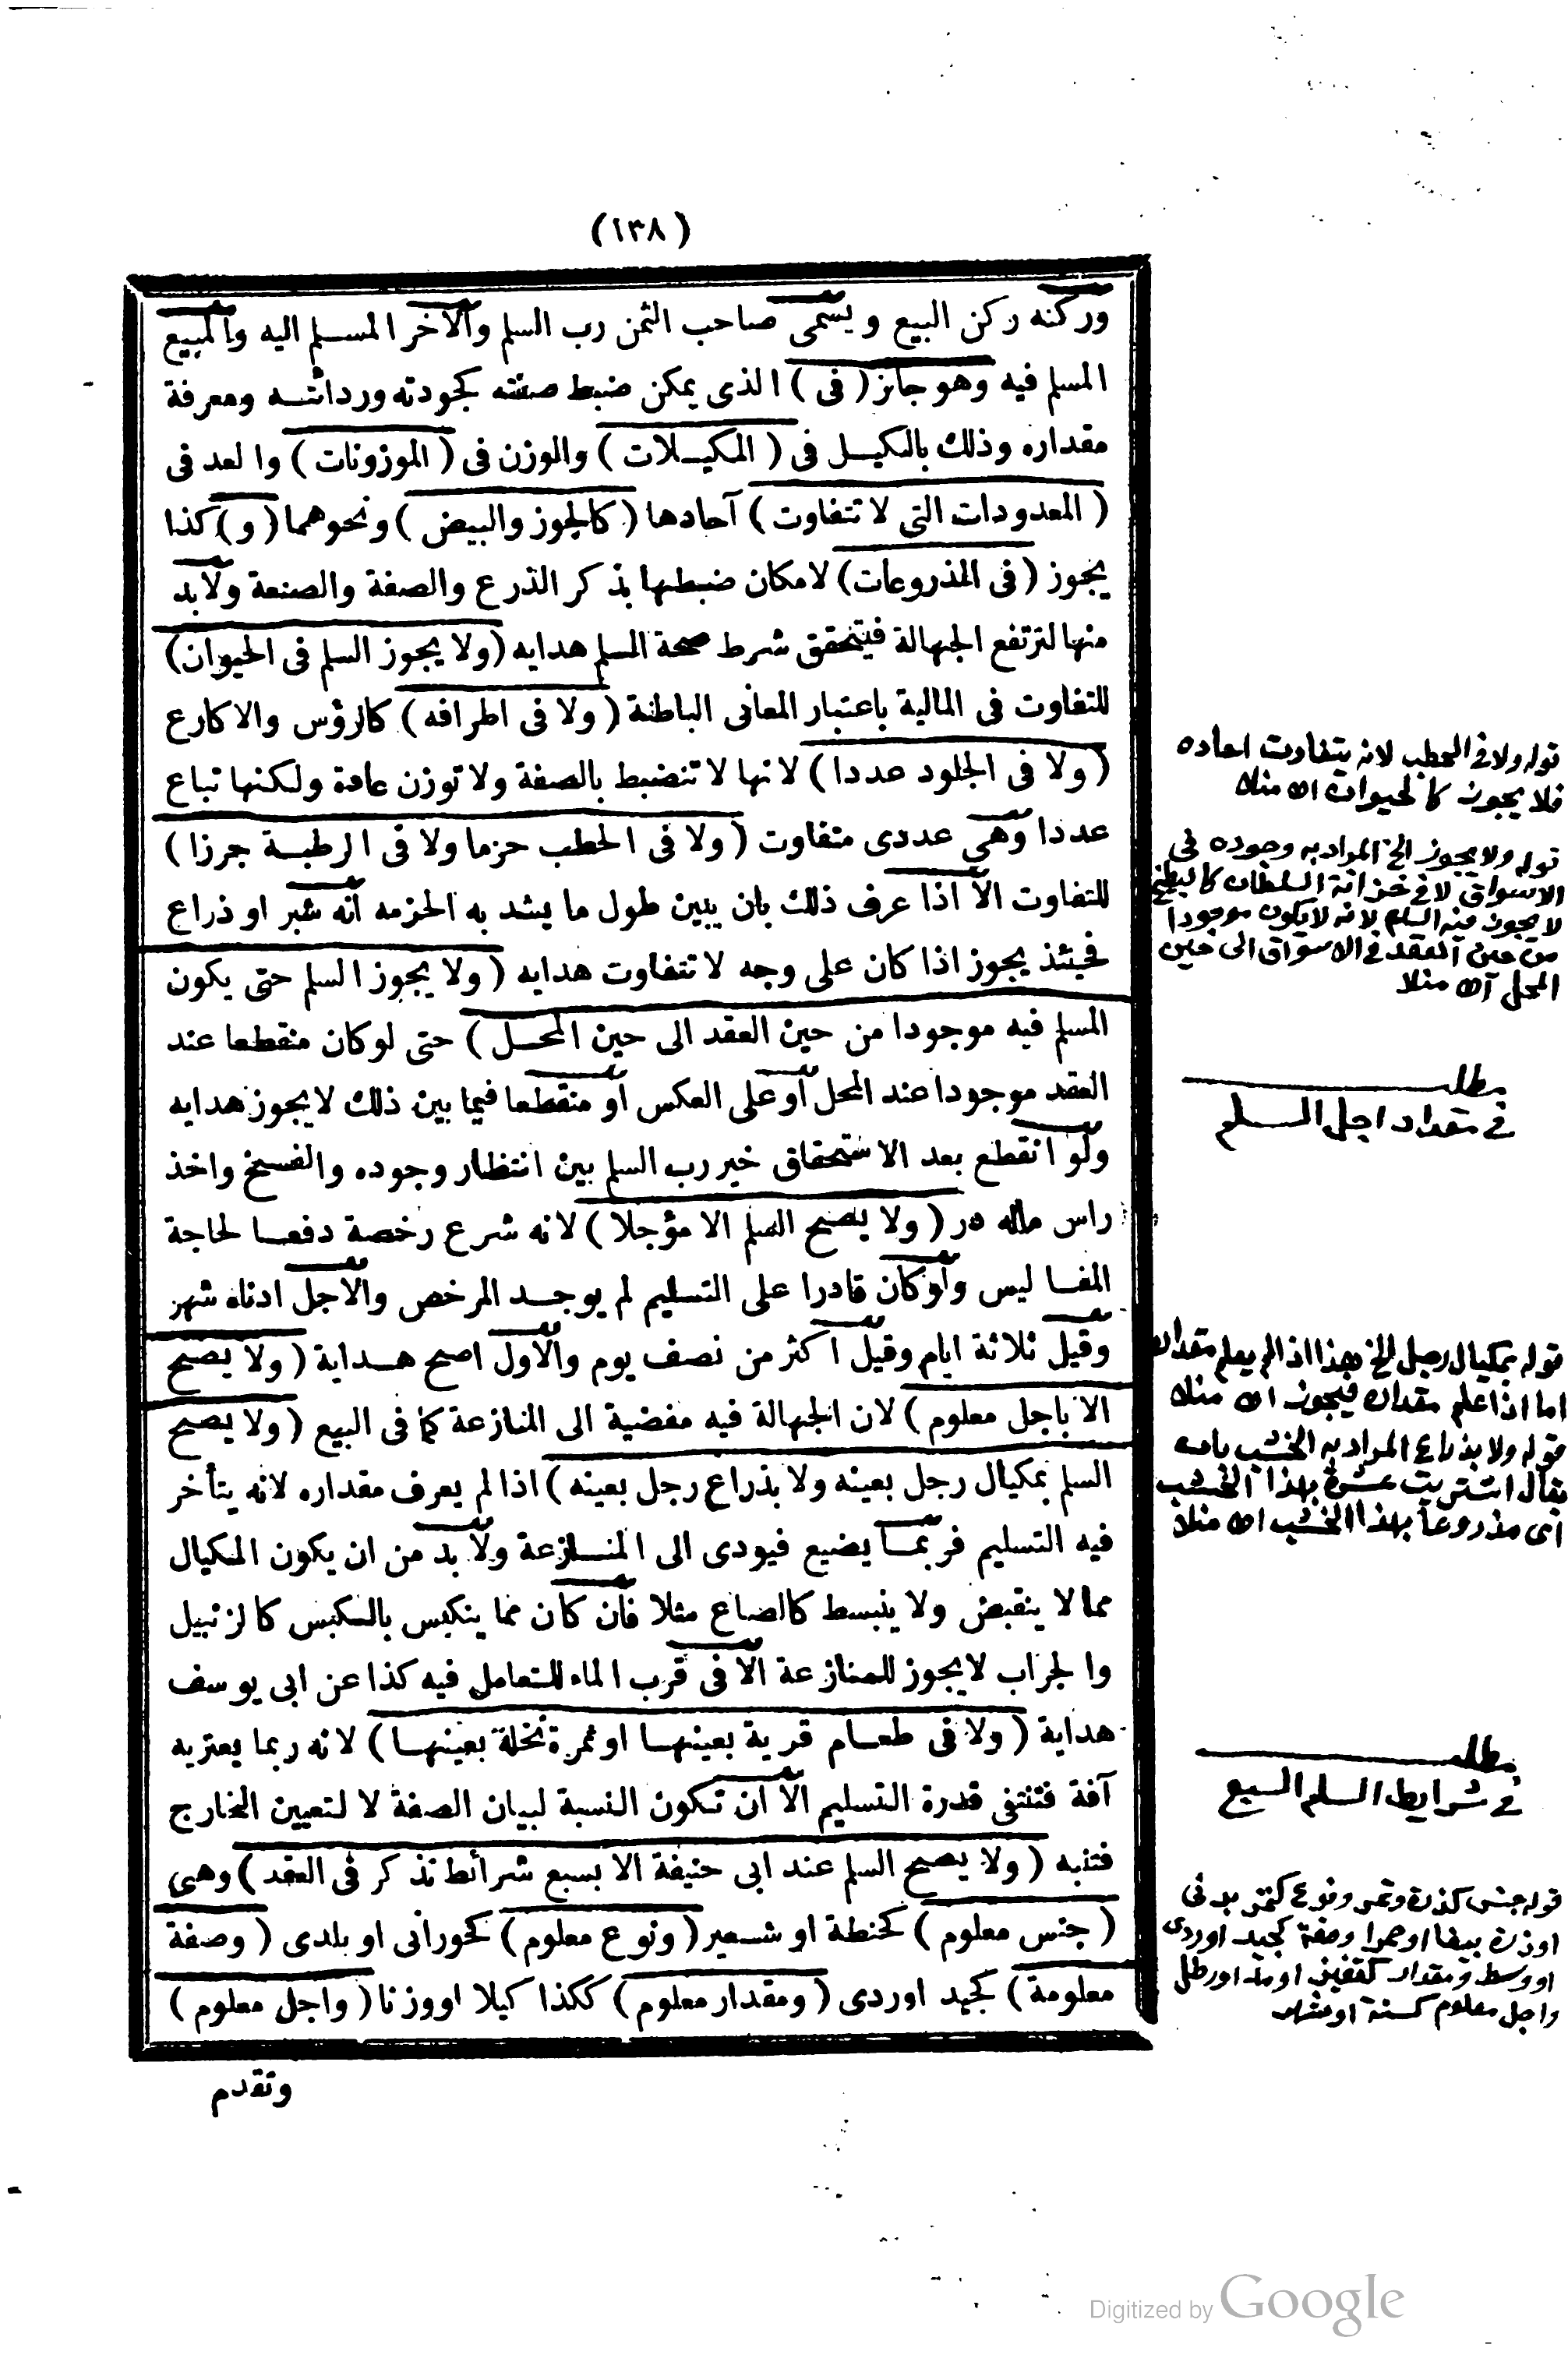 (١٣٨)
وركنه ركن البيع ويسمى صاحب الثمن رب السلم والآخر المسلم اليه والمبيع
المسلم فيه وهو جائز (فى) الذى يمكن ضبط صفته كجودته وردائته ومعرفة
مقداره وذلك بالكيل فى (المكيلات) والوزن فى (الموزونات) والعد فى
(المعدودات التى لا تتفاوت) آحادها (كالجوز والبيض) ونحوهما (و) كذا
يجوز (فى المذروعات) لامكان ضبطها بذكر الذرع والصفة والصنعة ولابد
منها لترتفع الجهالة فيتحقق شرط صحة السلم هدايه (ولا يجوز السلم فى الحيوان)
للتفاوت فى المالية باعتبار المعانى الباطنة (ولا فى اطرافه) كالرؤس والاكارع
(ولا فى الجلود عددا) لانها لا تنضبط بالصفة ولا توزن عادة ولكنها تباع
عددا وهى عددى متفاوت (ولا فى الحطب حزما ولا فى الرطبة جرزا)
للتفاوت الا اذا عرف ذلك بان يبين طول ما يشد به الحزمه انه شبر او ذراع
فحينئذ يجوز اذا كان على وجه لا تتفاوت هدايه (ولا يجوز السلم حتى يكون
المسلم فيه موجودا من حين العقد الى حين المحل) حتى لو كان منقطعا عند
العقد موجودا عند المحل او على العكس او منقطعا فيما بين ذلك لا يجوز هدايه
ولو انقطع بعد الاستحقاق خير رب السلم بين انتظار وجوده والفسخ واخذ
راس ماله در (ولا يصح السلم الا مؤجلا) لانه شرع رخصة دفعا لحاجة
المفاليس ولو كان قادرا على التسليم لم يوجد المرخص والاجل ادناه شهر
وقيل ثلاثة ايام وقيل اكثر من نصف يوم والاول اصح هداية (ولا يصح
الا باجل معلوم) لان الجهالة فيه مفضية الى المنازعة كما فى البيع (ولا يصح
السلم بمكيال رجل بعينه ولا بذراع رجل بعينه) اذا لم يعرف مقداره لانه يتأخر
فيه التسليم فربما يضيع فيودى الى المنازعة ولا بد من ان يكون المكيال
مما لا ينقبض ولا ينبسط كالصاع مثلا فان كان مما ينكبس بالكبس كالزنبيل
والجراب لا يجوز للمنازعة الا فى قرب الماء للتعامل فيه كذا عن ابى يوسف
هداية (ولا فى طعام قرية بعينها او ثمرة نخلة بعينها) لانه ربما يعتريه
آفة فتنتفى قدرة التسليم الا ان تكون النسبة لبيان الصفة لا لتعيين الخارج
فتنبه (ولا يصح السلم عند ابى حنيفة الا بسبع شرائط تذكر فى العقد) وهى
(جنس معلوم) كحنطة او شعير (ونوع معلوم) كحورانى او بلدى (وصفة
معلومة) كجيد اوردى (ومقدار معلوم) ككذا كيلا او وزنا (واجل معلوم)
وتقدم
قوله ولا فى الحطب لانه يتفاوت احاده
فلا يجوز كالحيوان اه منلا
قوله ولا يجوز الخ المراد به وجوده فى
الاسواق لا فى خزانة السلطان كالبطيخ
لا يجوز فيه السلم لانه لا يكون موجودا
من حين العقد فى الاسواق الى حين
المحل اه منلا
مطلب
فى مقدار اجل السلم
قوله بمكيال رجل الخ هذا اذا لم يعلم مقداره
اما اذا علم مقداره فيجوز اه منلا
قوله ولا بذراع المراد به الخشب بان
يقال اشتريت عشرة بهذا الخشب
اى مذروعا بهذا الخشب اه منلا
مطلب
فى شرايط السلم السبع
قوله جنس كذرة وتمر ونوع كتمر بدنى
او ذرة بيضا او حمرا وصفة كجيد اوردى
او وسط ومقدار كقفيز او مد او رطل
واجل معلوم كسنة او شهر
Digitized by Google